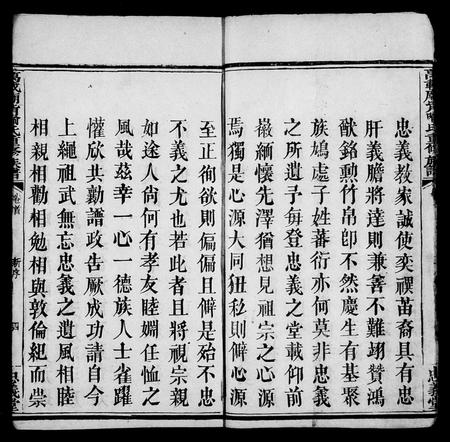 忠義教家誠使奕禩苗裔具有忠
肝義膽將達則兼善不難翊贊鴻
猷銘勲竹帛卽不然慶生有基聚
族鳩處子姓蕃衍亦何莫非忠義
之所遺予每登忠義之堂載仰前
徽緬懷先澤猶想見祖宗之心源
焉獨是心源大同狃私則僻心源
至正徇欲則偏偏且僻是殆不忠
不義之尤也若此者且將視宗親
如途人尙何有孝友睦婣任恤之
風哉茲幸一心一德族人士雀躍
懽欣共勷譜政告厥成功請自今
上繩祖武無忘忠義之遺風相睦
相親相勸相勉相與敦倫紀而崇
卷首
新序
四
忠義堂